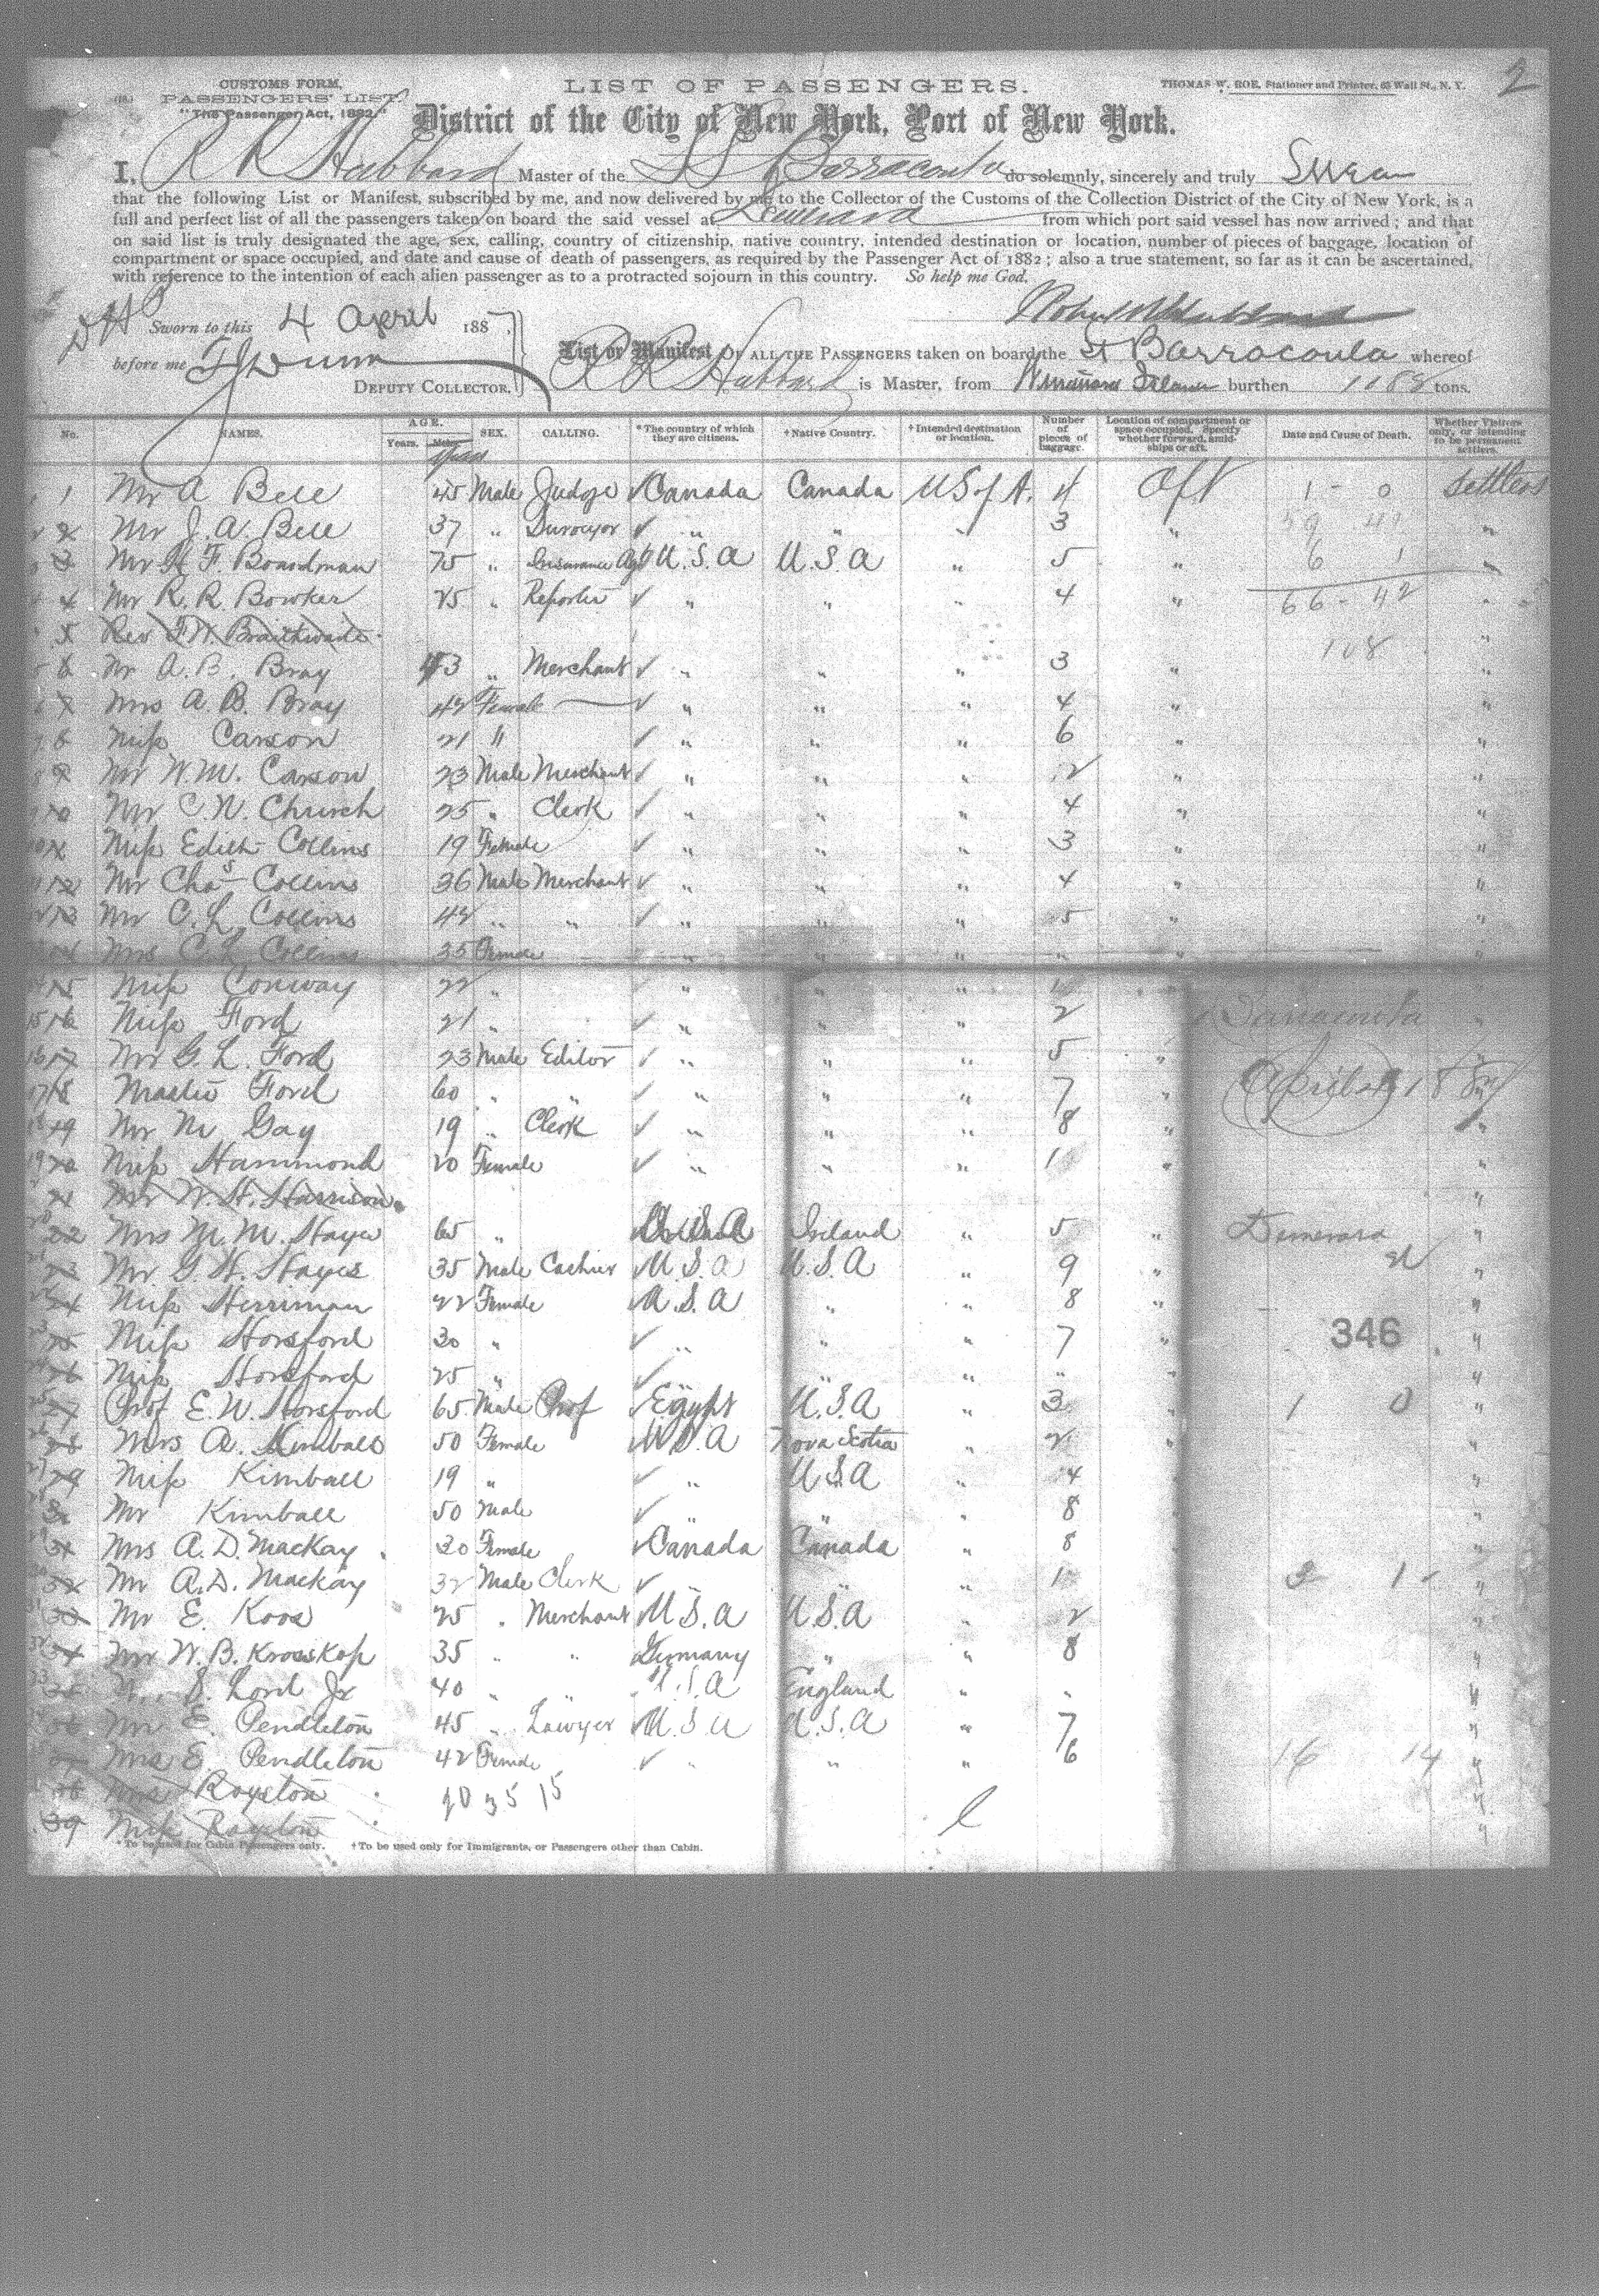 2
CUSTOMS FORM.
PASSENGERS' LIST.
"The Passenger Act, 1882."
LIST OF PASSENGERS.
THOMAS W. ROE, Stationer and Printer, 63 Wall St., N. Y.
District of the City of New York, Port of New York.
I, R R Hubbard Master of the SS Barracouta do solemnly, sincerely and truly Swear
that the following List or Manifest, subscribed by me, and now delivered by me to the Collector of the Customs of the Collection District of the City of New York, is a
full and perfect list of all the passengers taken on board the said vessel at Demerara from which port said vessel has now arrived; and that
on said list is truly designated the age, sex, calling, country of citizenship, native country, intended destination or location, number of pieces of baggage, location of
compartment or space occupied, and date and cause of death of passengers, as required by the Passenger Act of 1882; also a true statement, so far as it can be ascertained,
with reference to the intention of each alien passenger as to a protracted sojourn in this country. So help me God.
Sworn to this 4 April 1887.
before me
DEPUTY COLLECTOR.
List or Manifest OF ALL THE PASSENGERS taken on board the SS Barracouta whereof
R R Hubbard is Master, from burthen tons.
No. NAMES. AGE. Years. SEX. CALLING. *The country of which they are citizens. †Native Country. †Intended destination or location. Number of pieces of baggage. Location of compartment or space occupied. Specify whether forward, amidships or aft. Date and Cause of Death. Whether Visitors only, or intending to be permanent settlers.
1 Mr A Bell 45 Male Judge Canada Canada US of A. 4 Aft 1 - 0 Settlers
2 Mr J. A. Bell 37 " Surveyor " " " 3 " 59 41 "
3 Mr H F. Boardman 75 " Insurance Agt U.S.A U.S.A " 5 " 6 1 "
4 Mr R. R. Bowker 25 " Reporter " " " 4 " 66 - 42 "
5 Rev F. W. Braithwaite "
108
6 Mr A. B. Bray 43 " Merchant " " " 3 " "
7 Mrs A. B. Bray 42 Female " " " 4 " "
8 Miss Carson 21 " " " " 6 " "
9 Mr W. M. Carson 23 Male Merchant " " " 2 " "
10 Mr C. N. Church 25 " Clerk " " " 4 " "
Miss Edith Collins 19 Female " " " 3 " "
12 Mr Chas Collins 36 Male Merchant " " " 4 " "
13 Mr C. L Collins 42 " " " " " 5 " "
14 Mrs C. L Collins 35 Female " " " " " "
15 Miss Conway 22 " " " " "
16 Miss Ford 21 " " " " 2 "
17 Mr G. L. Ford 23 Male Editor " " " 5 " "
April 4 1887
18 Master Ford 60 " " " " " 7 "
19 Mr M Gay 19 " Clerk " " " 8 " "
20 Miss Hammond 20 Female " " " 1 "
21 Mr W. H. Harrison "
22 Mrs M. M. Hayes 65 " U.S.A Ireland " 5 " Demerara "
23 Mr G. H. Hayes 35 Male Cashier U.S.A U.S.A " 9 " "
24 Miss Herriman 22 Female U.S.A " " 8 " "
346
25 Miss Horsford 30 " " " " 7 " "
26 Miss Horsford 25 " " " " " "
27 Prof E. N. Horsford 65 Male Prof Egypt U.S.A " 3 " 1 0 "
28 Mrs A. Kimball 50 Female U.S.A Nova Scotia " 2 " "
29 Miss Kimball 19 " " U.S.A " 4 " "
Mr Kimball 50 Male " " " 8 " "
31 Mrs A. D. MacKay 30 Female Canada Canada " 8 " "
32 Mr A. D. Mackay 32 Male Clerk " " " 1 " 3 1 "
33 Mr E. Koos 25 " Merchant U.S.A U.S.A " 2 "
34 Mr W. B. Krosskop 35 " " Germany " " 8 "
35 S. Lord Jr 40 " " U.S.A England " " "
36 Mr E. Pendleton 45 " Lawyer U.S.A U.S.A " 7 "
37 Mrs E. Pendleton 42 Female " " " 6 16 14 "
38 Mrs Royston 20 35 15 "
39 Miss Royston "
*To be used for Cabin Passengers only. †To be used only for Immigrants, or Passengers other than Cabin.